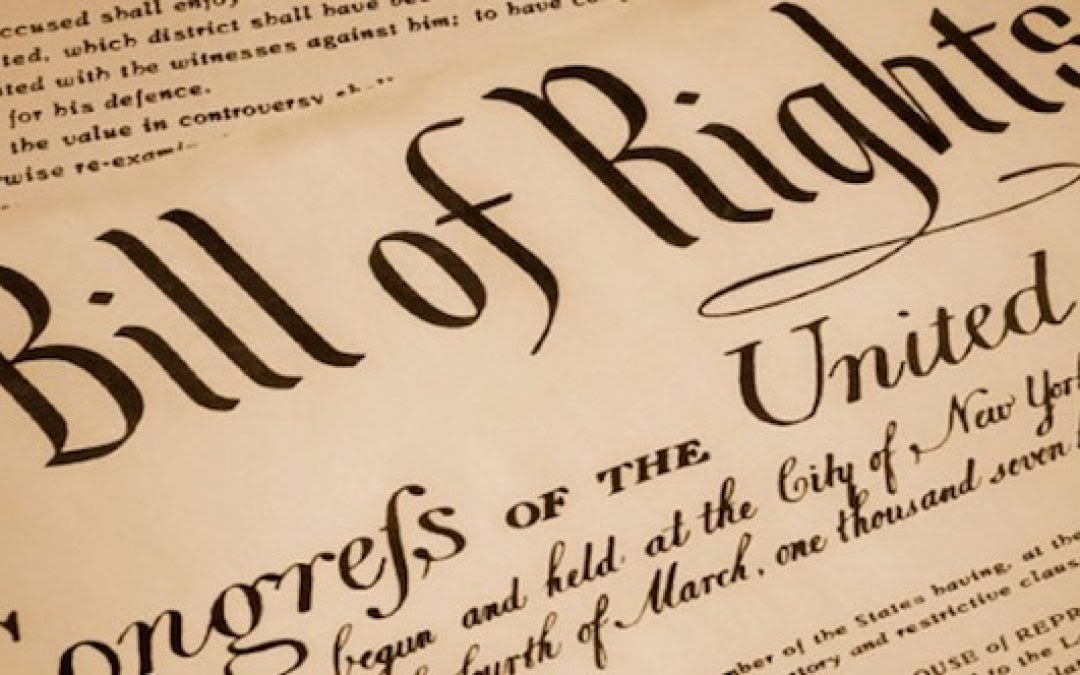 ccused shall enjoy
ted, which district shall have be
ted with the witnesses against him; to have
for his defence.
the value in controversy
wise re-exam
Bill of Rights
United
Congreſs OF THE
begun and held at the City of New York
fourth of March, one thousand seven
mber of the States having, at the
tory and restrictive claus
OUSE of REPR
to the L